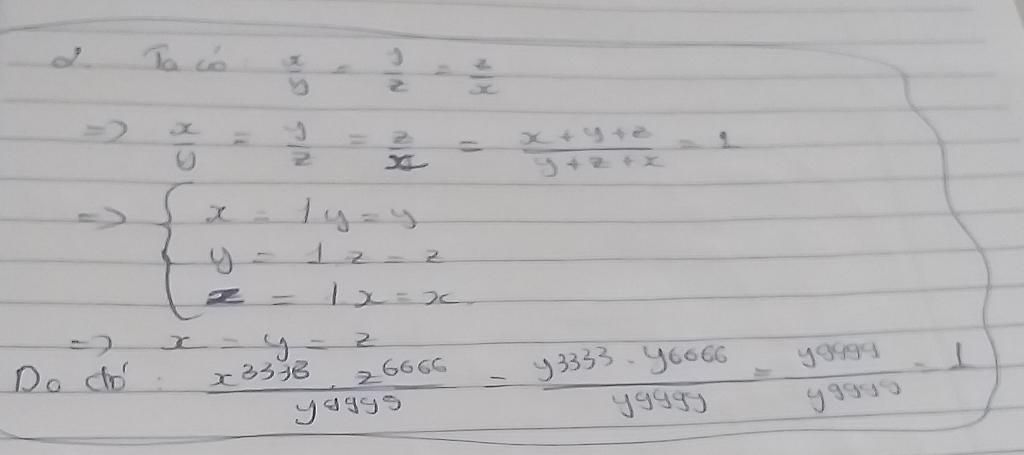 2. Ta có x/y = y/z = z/x
=> x/y = y/z = z/x = (x + y + z)/(y + z + x) = 1
=> { x = 1y = y
y = 1z = z
z = 1x = x
=> x = y = z
Do đó : (x^3333 . z^6666)/y^9999 = (y^3333 . y^6666)/y^9999 = y^9999/y^9999 = 1